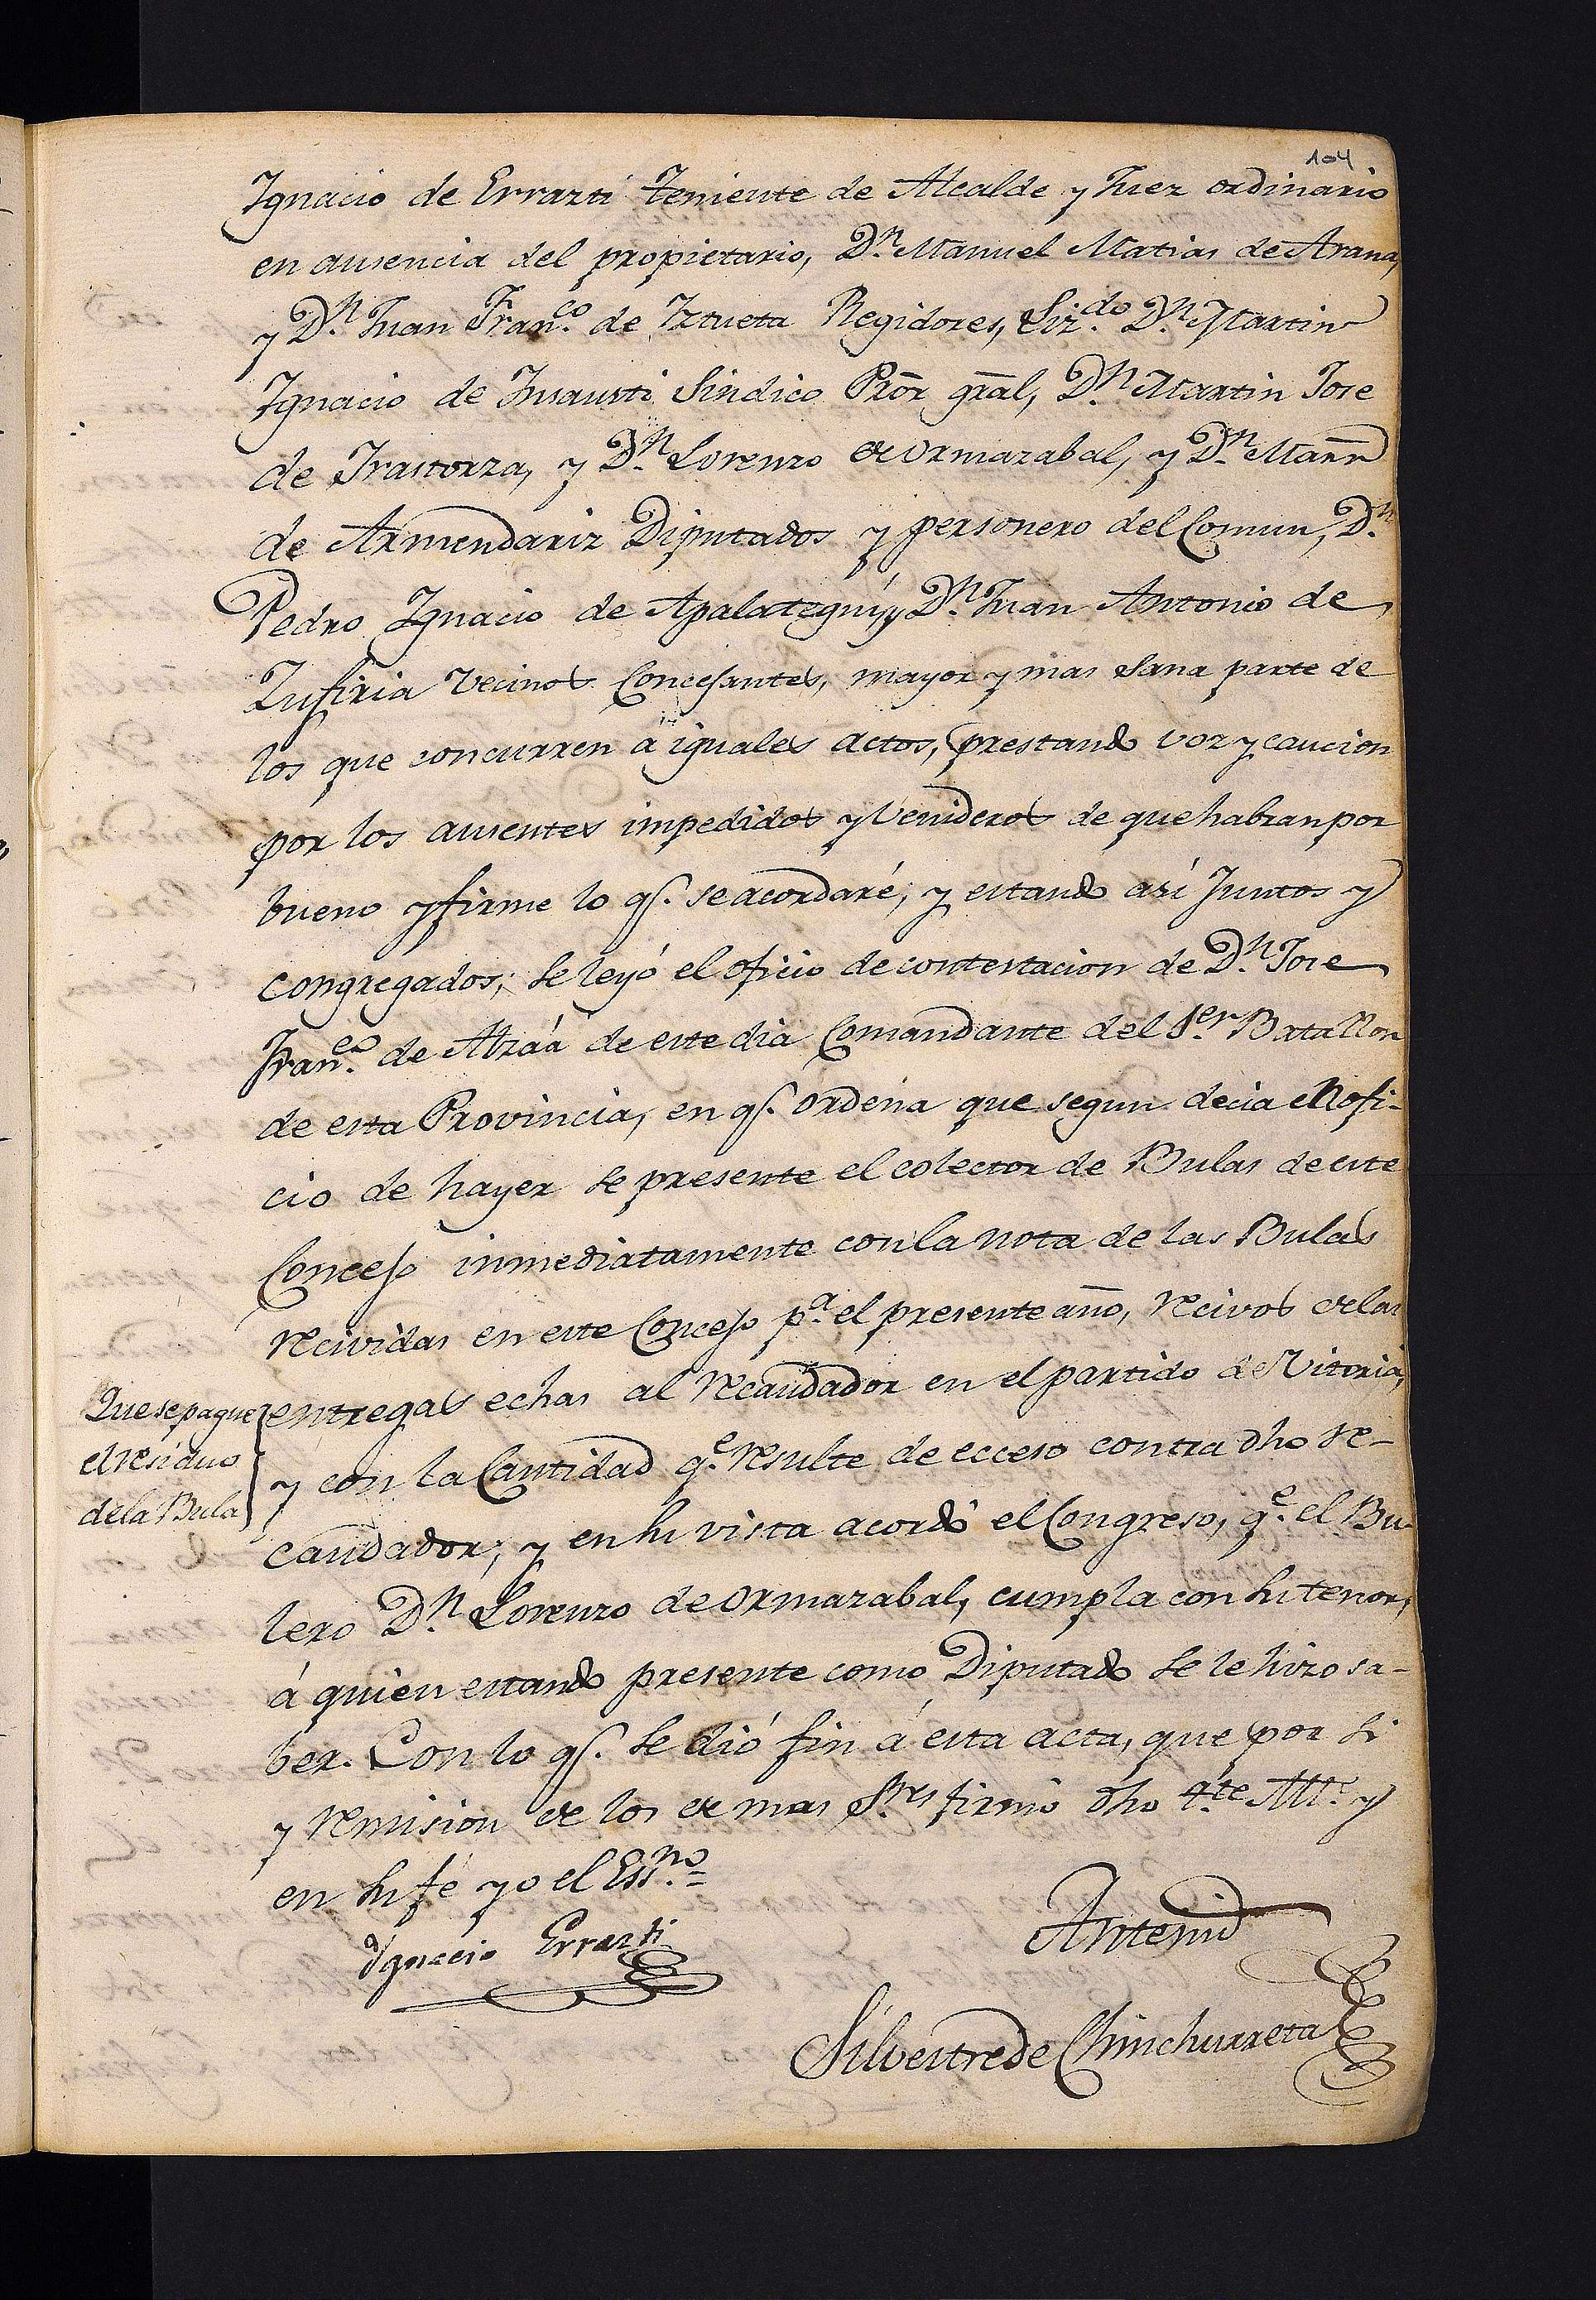 104
Ignacio de Errazti Teniente de Alcalde y Juez ordinario
en ausencia del propietario, Dn. Manuel Matias de Arana,
y Dn. Juan Franco. de Iztueta Regidores, Lizdo. Dn. Martin
Ignacio de Insausti Sindico Prõr grãl, Dn. Martin Jose
de Irastorza, y Dn. Lorenzo de Ormazabal, y Dn. Manñ
de Armendariz Diputados y personero del Comun, Dn.
Pedro Ignacio de Apalategui, y Dn. Juan Antonio de
Zufiria Vecinos Concejantes, mayor y mas sana parte de
los que concurren á iguales actos, prestando voz y caucion
por los ausentes impedidos y Venideros de que habran por
bueno y firme lo q. se acordaré, y estando así Juntos y
congregados; se leyó el oficio de contestacion de Dn. Jose
Franco. de Alzáa de este dia Comandante del 1er. Batallon
de esta Provincia, en q. ordena que segun decia en ofi-
cio de hayer se presente el colector de Bulas de este
Concejo inmediatamente con la nota de las Bulas
recividas en este Concejo pa. el presente año, recivos de las
entregas echas al recaudador en el partido de Vitoria,
y con la Cantidad qe. resulte de ecceso contra dho re-
caudador; y en su vista acordó el Congreso, qe. el Bu-
lero Dn. Lorenzo de Ormazabal, cumpla con su tenor,
á quien estando presente como Diputado se le hizo sa-
ber. Con lo q. se dió fin á esta acta, que por si
y remision de los demas Sres firmó dho Tte. Alle. y
en su fé yo el Essno.=
Que se pague
el residuo
de la Bula
Ignacio Errazti
Antemi
Silvestre de Chinchurreta